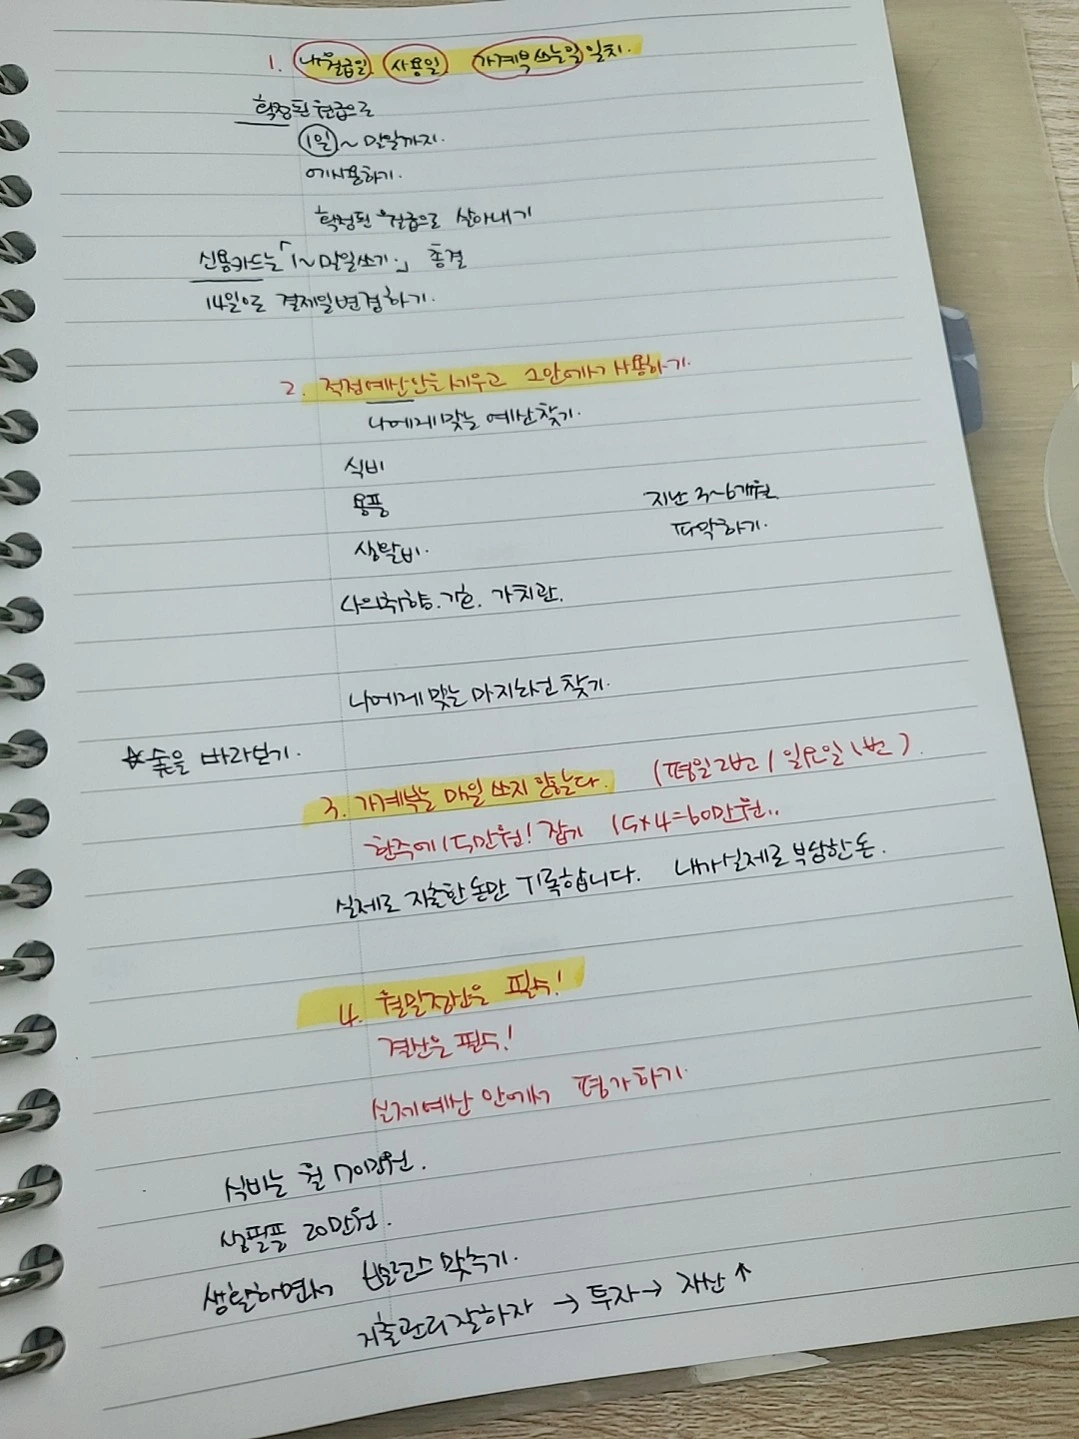 1. 내월급일 사용일 가계부 쓰는일 일치.
확정된 현금으로
1일 ~ 말일까지.
에사용하기.
확정된 월급으로 살아내기
신용카드는「1~말일쓰기.」 종결
14일으로 결제일변경하기.
2. 적정예산안을세우고 그안에서 사용하기.
나에게맞는 예산찾기.
식비
용품 지난 3~6개월
생활비. 파악하기.
나의취향. 가치관.
나에게 맞는 마지노선 찾기.
☆숲을 바라보기.
3. 가계부는 매일 쓰지 않는다. (평일2번 / 일요일 1번)
한주에 15만원! 잡기 15x4=60만원..
실제로 지출한돈만 기록합니다. 내가실제로 부담한 돈.
4. 월말정산은 필수!
결산은 필수!
실제예산 안에서 평가하기.
식비는 월 70만원.
생필품 20만원.
생활하면서 밸런스 맞추기.
지출관리잘하자 → 투자→ 자산↑